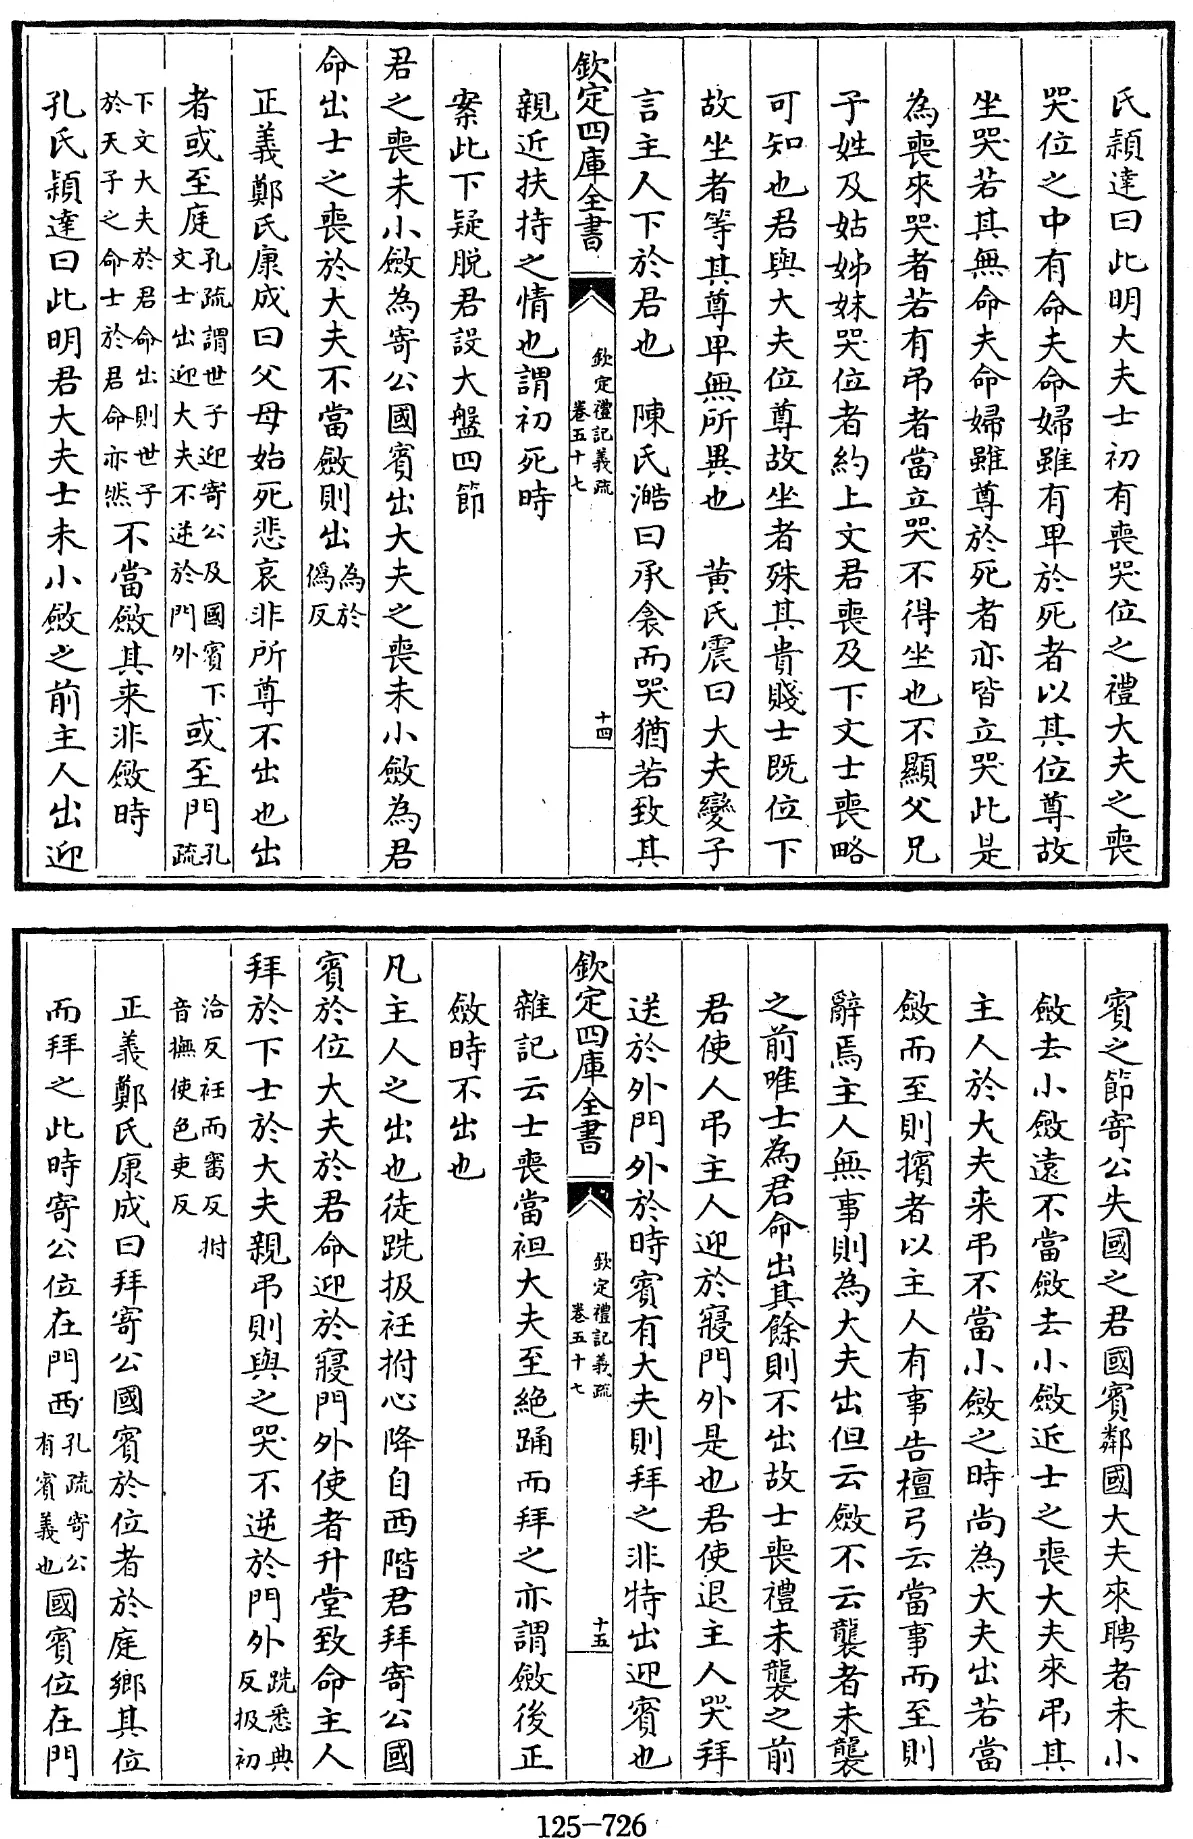 氏頴達曰此明大夫士初有喪哭位之禮大夫之喪
哭位之中有命夫命婦雖有卑於死者以其位尊故
坐哭若其無命夫命婦雖尊於死者亦皆立哭此是
為喪來哭者若有弔者當立哭不得坐也不顯父兄
子姓及姑姊妹哭位者約上文君喪及下文士喪略
可知也君與大夫位尊故坐者殊其貴賤士既位下
故坐者等其尊卑無所異也　黄氏震曰大夫變子
言主人下於君也　陳氏澔曰承衾而哭猶若致其
欽定四庫全書
欽定禮記義疏
卷五十七
十四
親近扶持之情也謂初死時
案此下疑脱君設大盤四節
君之喪未小斂為寄公國賓出大夫之喪未小斂為君
命出士之喪於大夫不當斂則出為於
偽反
正義鄭氏康成曰父母始死悲哀非所尊不出也出
者或至庭孔疏謂世子迎寄公及國賓下
文士出迎大夫不逆於門外或至門孔
疏
下文大夫於君命出則世子
於天子之命士於君命亦然不當斂其来非斂時
孔氏頴達曰此明君大夫士未小斂之前主人出迎
賓之節寄公失國之君國賓鄰國大夫來聘者未小
斂去小斂遠不當斂去小斂近士之喪大夫來弔其
主人於大夫来弔不當小斂之時尚為大夫出若當
斂而至則擯者以主人有事告檀弓云當事而至則
辭焉主人無事則為大夫出但云斂不云襲者未襲
之前唯士為君命出其餘則不出故士喪禮未襲之前
君使人弔主人迎於寢門外是也君使退主人哭拜
送於外門外於時賓有大夫則拜之非特出迎賓也
欽定四庫全書
欽定禮記義疏
卷五十七
十五
雜記云士喪當袒大夫至絶踊而拜之亦謂斂後正
斂時不出也
凡主人之出也徒跣扱衽拊心降自西階君拜寄公國
賓於位大夫於君命迎於寢門外使者升堂致命主人
拜於下士於大夫親弔則與之哭不逆於門外跣悉典
反扱初
洽反衽而審反拊
音撫使色吏反
正義鄭氏康成曰拜寄公國賓於位者於庭鄉其位
而拜之此時寄公位在門西孔疏寄公
有賓義也國賓位在門
125-726